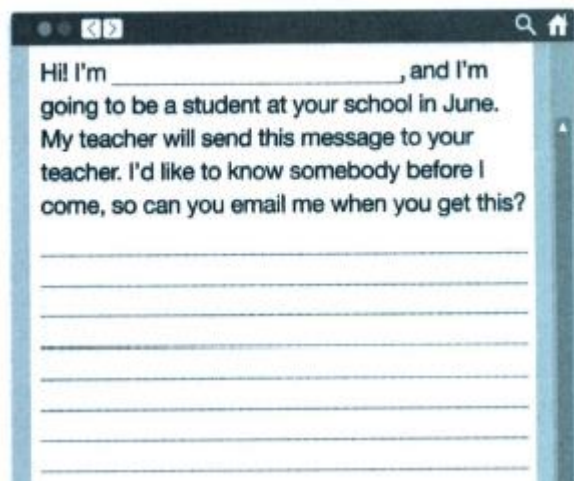 Hi! I'm ____________________, and I'm
going to be a student at your school in June.
My teacher will send this message to your
teacher. I'd like to know somebody before I
come, so can you email me when you get this?